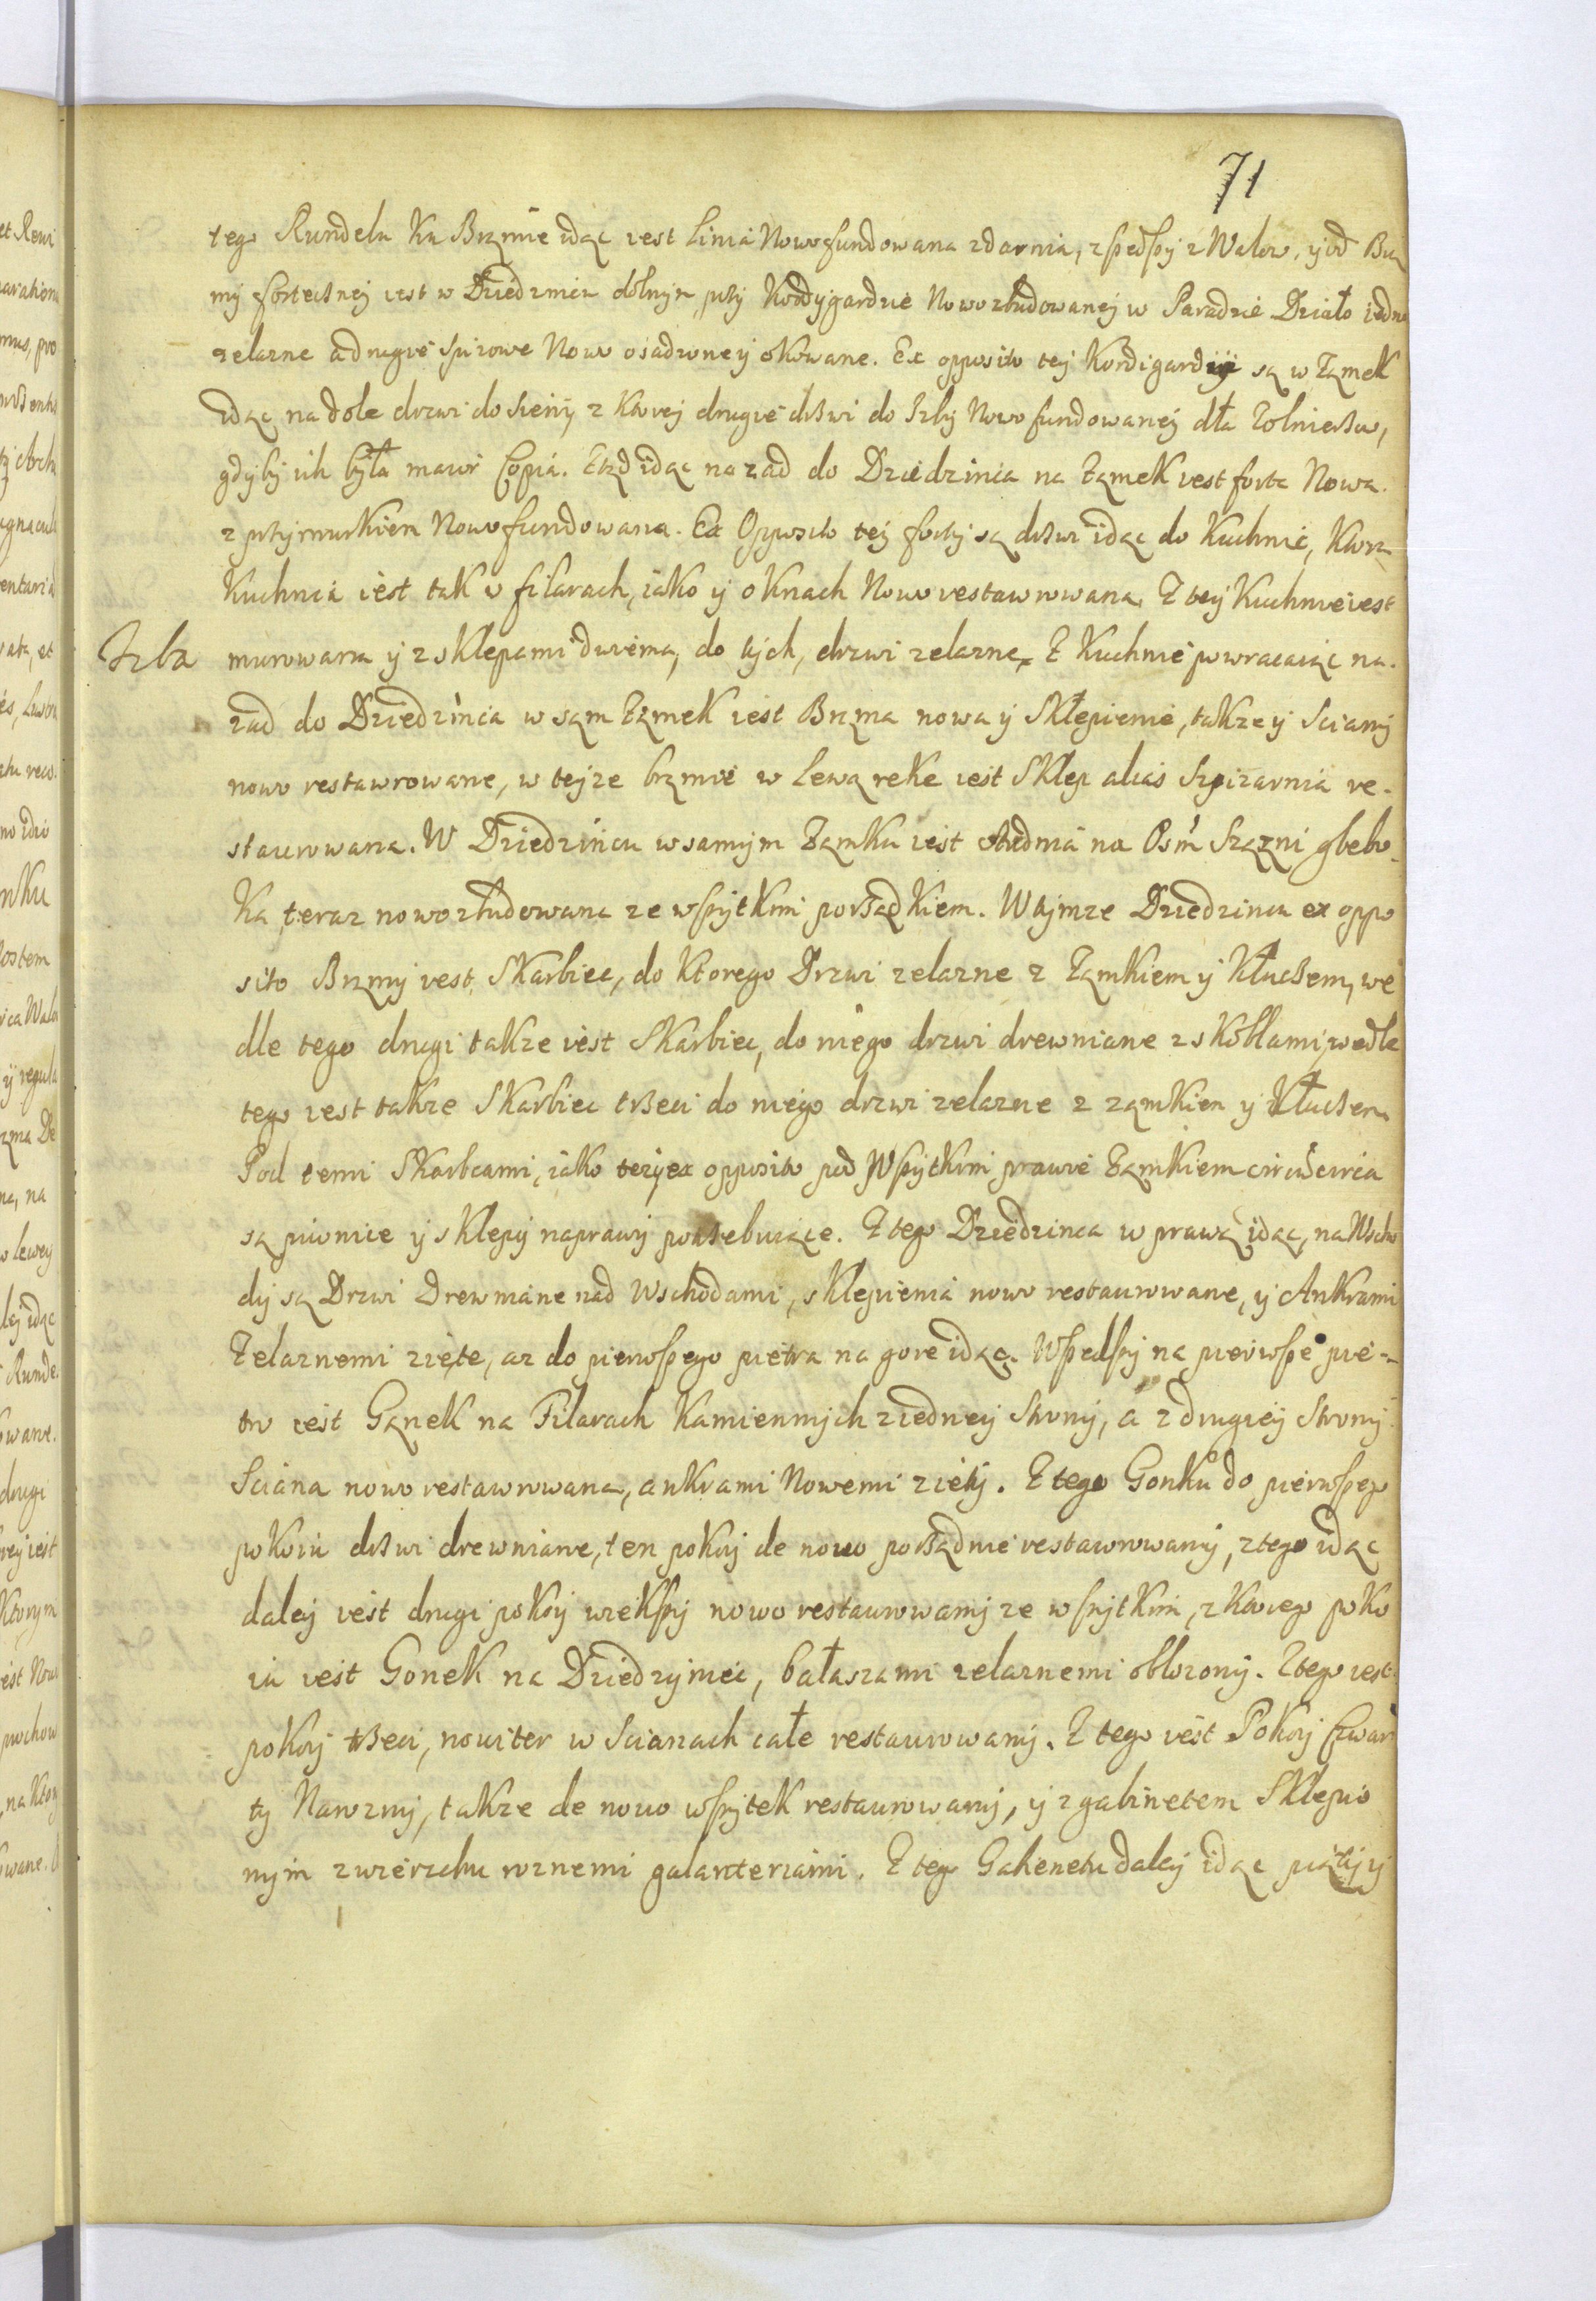 71
tego Rundelu Ku Brąmie idąc iest Linia Nowofundowana zdarnia, zszedszy z Walow, y od Brą
my forteczney iest w Dziedzincu dolnym przy Kordygardzie Nowozbudowaney w Paradzie Działo iedno
zelazne a drugie spizowe Nowo osadzone y okowane. Ex opposito tey Kordigardyi są w Zamek
idąc na dole drzwi do sieni, z Ktorey drugie drzwi do Izby Nowo fundowaney dła Zolnierzow,
gdyby ich była mawi Copia. Ztąd idąc nazad do Dziedzinca na Zamek iest forta Nowa
z przymurkiem Nowofundowana. Ex Opposito tey forty są drzwi idąc do Kuchnie, Ktora
Kuchnia iest tak w filarach, iako y oknach Nowo restawrowana. Z tey Kuchnie iest
Izba murowana y z sklepami dwiema, do tych, drzwi zelazne. Z Kuchnie powracaiąc na-
zad do Dziedzinca w sam Zamek iest Brąma nowa y Skłepienie, takze y Sciany
nowo restawrowane, w teyze brąmie w Lewą reke iest Sklep alias Szpizarnia re-
staurowana. W Dziedzincu w samym Zamku iest studnia na Osm Sążni glebo-
Ka teraz nowozbudowana ze wszytkim porządkiem. W tymze Dziedzincu ex oppo
sito Brąmy iest Skarbiec, do Ktorego Drzwi zelazne z Zamkiem y Kłuczem, we
dle tego drugi takze iest Skarbiec, do niego drzwi drewniane z skoblami, wedle
tego iest takze Skarbiec trzeci do niego drzwi zelazne z zamkiem y Kłuczem
Pod temi Skarbcami, iako tezy ex opposito pod Wszytkim prawie Zamkiem circumcirca
są piwnice y sklepy naprawy potrzebuiące. Z tego Dziedzinca w prawą idąc, na Wscho
dy są Drzwi Drewniane nad Wschodami, sklepienia nowo restaurowane, y Ankrami
Zelaznemi ziete, az do pierwszego pietra na gore idąc. Wszedszy na pierwsze pie-
tro iest Ganek na Filarach Kamiennych z iedney Strony, a z drugiey Strony
Sciana nowo restawrowana, ankrami Nowemi zięty. Z tego Gonku do pierwszego
pokoiu drzwi drewniane, ten pokoy de nowo porządnie restawrowany, z tego idąc
daley iest drugi pokoy wiekszy nowo restaurowany ze wszytkim, z ktorego poko
iu iest Gonek na Dziedzyniec, bałaszami zelaznemi oblozony. Z tego iest
pokoy trzeci, nowiter w Scianach całe restaurowany. Z tego iest Pokoy Czwar
ty Narozny, takze de nowo wszytek restaurowany, y z gabinetem Sklepio
nym z wierzchu roznemi galanteriami. Z tego Gabinetu daley idąc piąty y